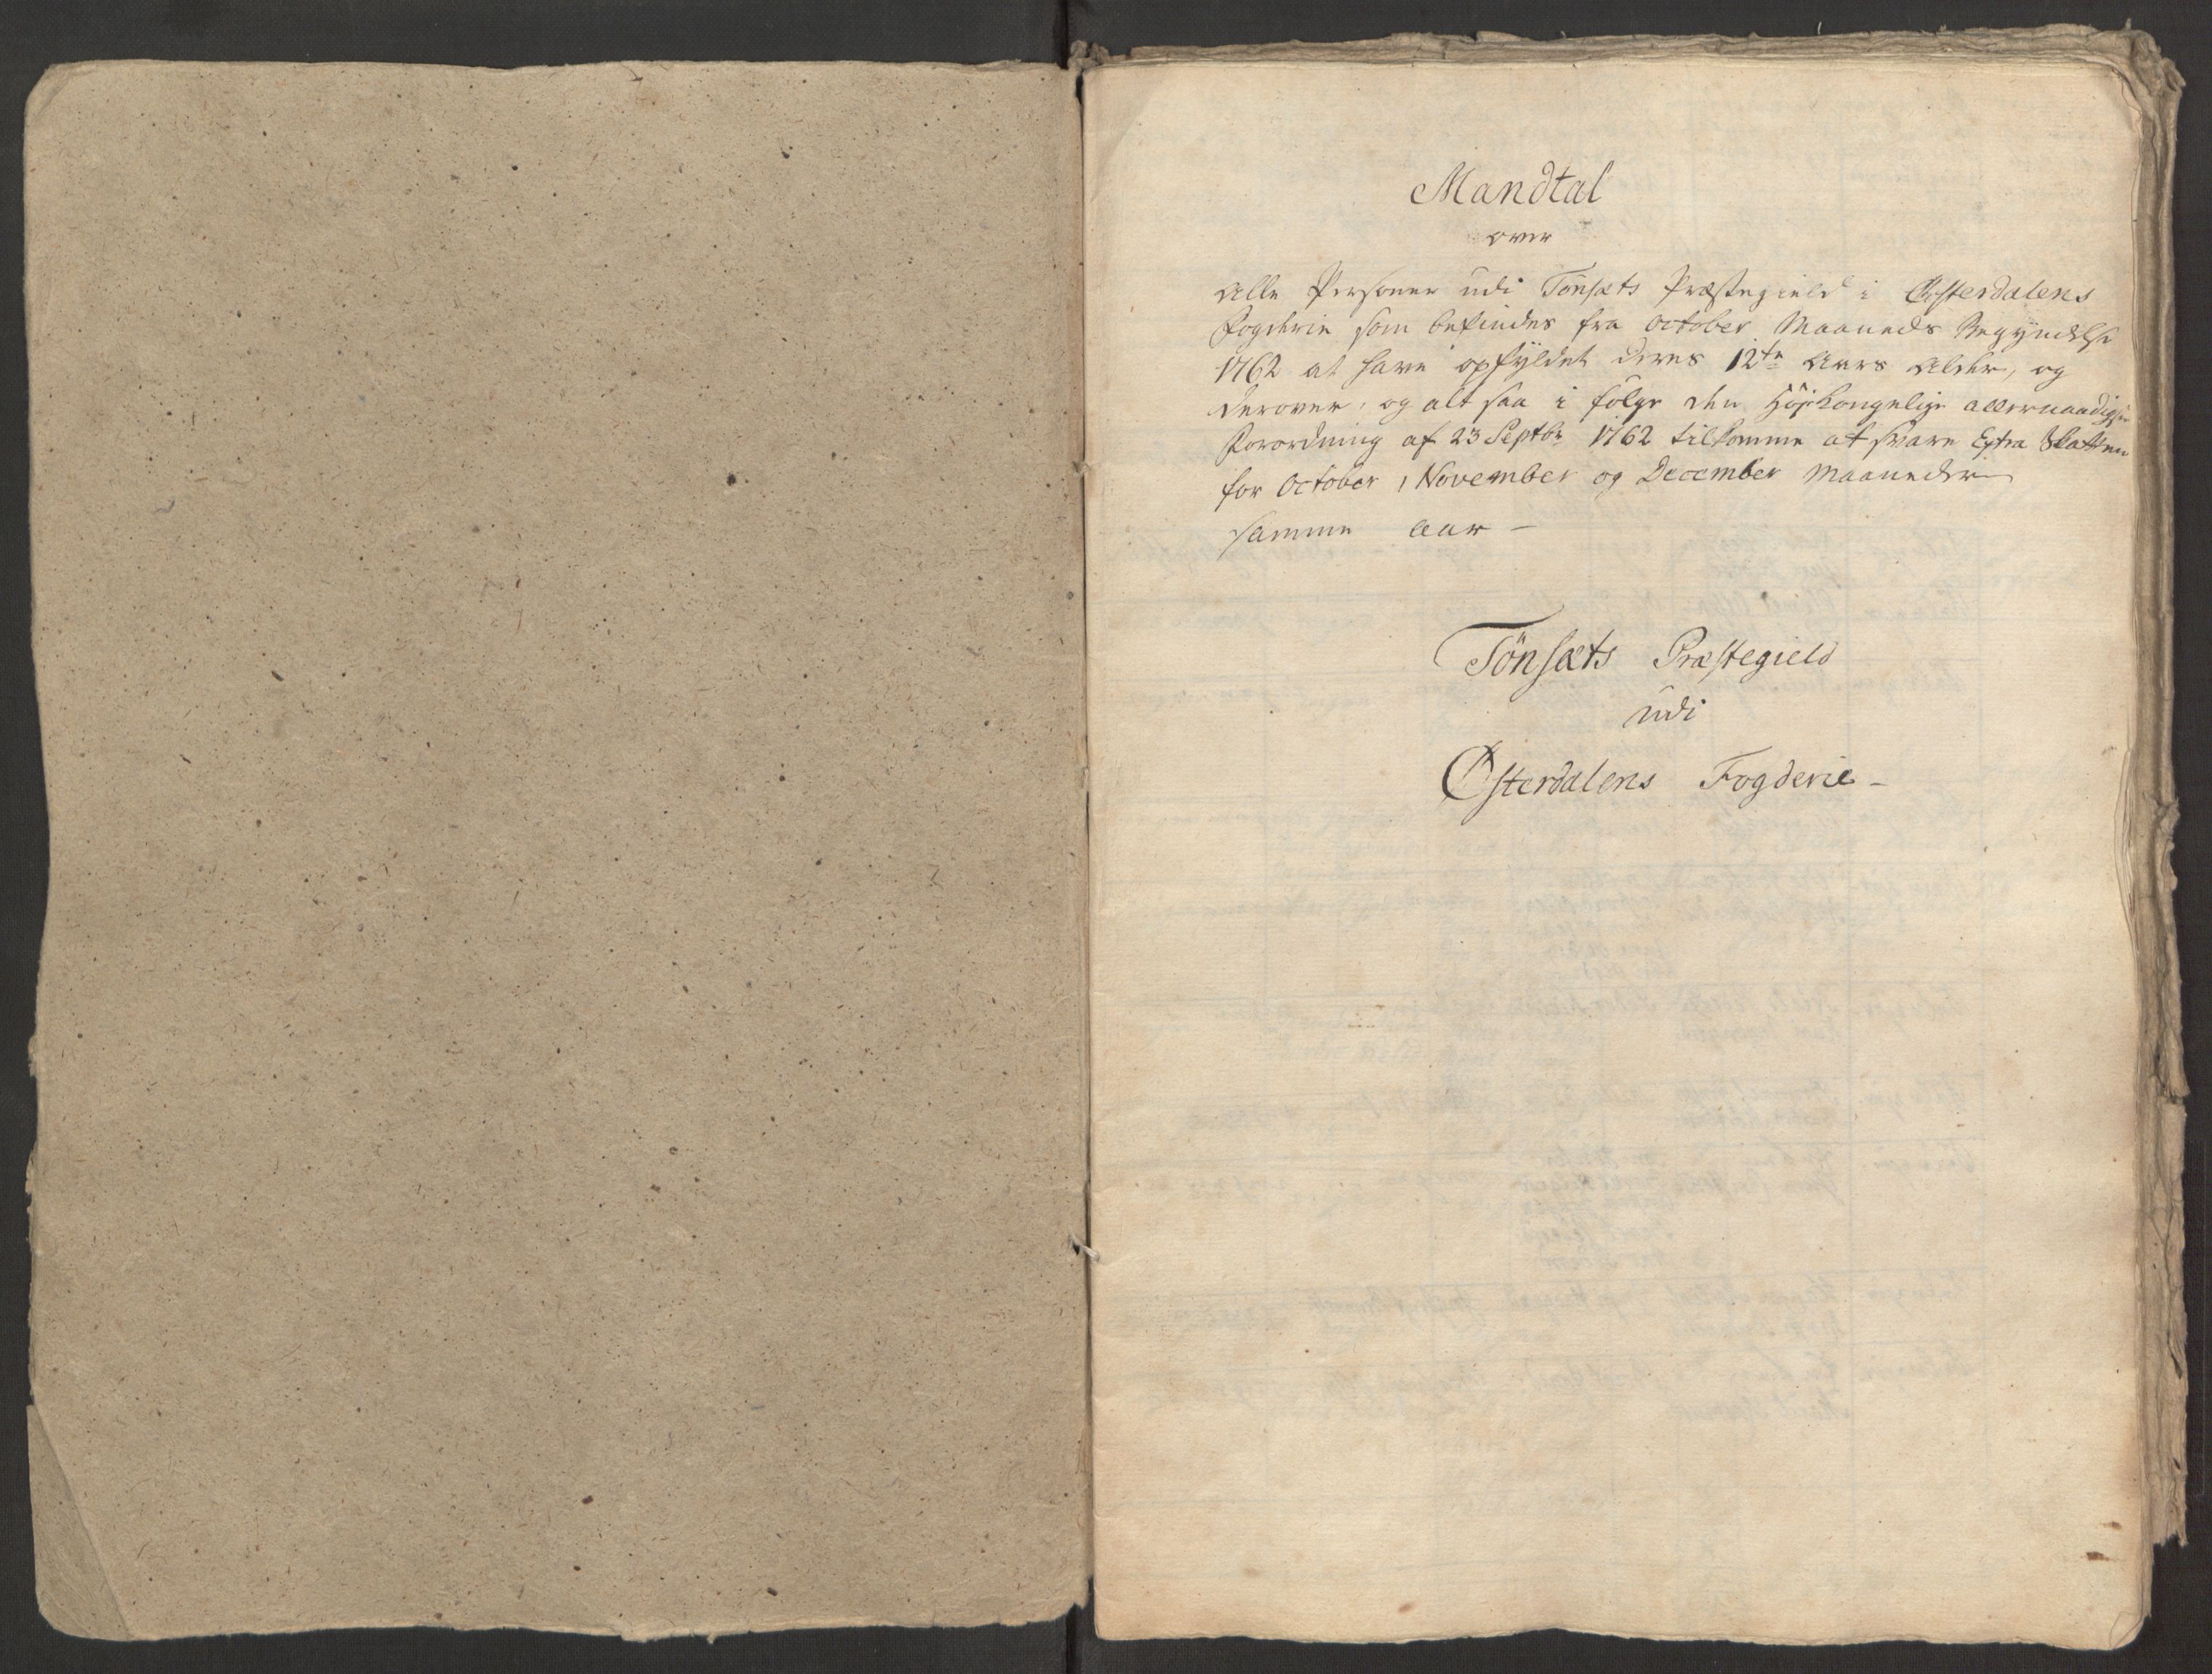 Mandtal
over
Alle Personer udi Tönsæts Præstegield i Østerdalens
Fogderie som befindes fra October Maaneds Begyndelse
1762 at have opfyldet deres 12te Aars Alder, og
derover, og alt saa i følge den Høykongelige allernaadigste
Forordning af 23 Septbr 1762 tilkomme at svare Extra Skatten
for October, November og December Maaneder
samme Aar -
Tönsæts Præstegield
udi
Østerdalens Fogderie -